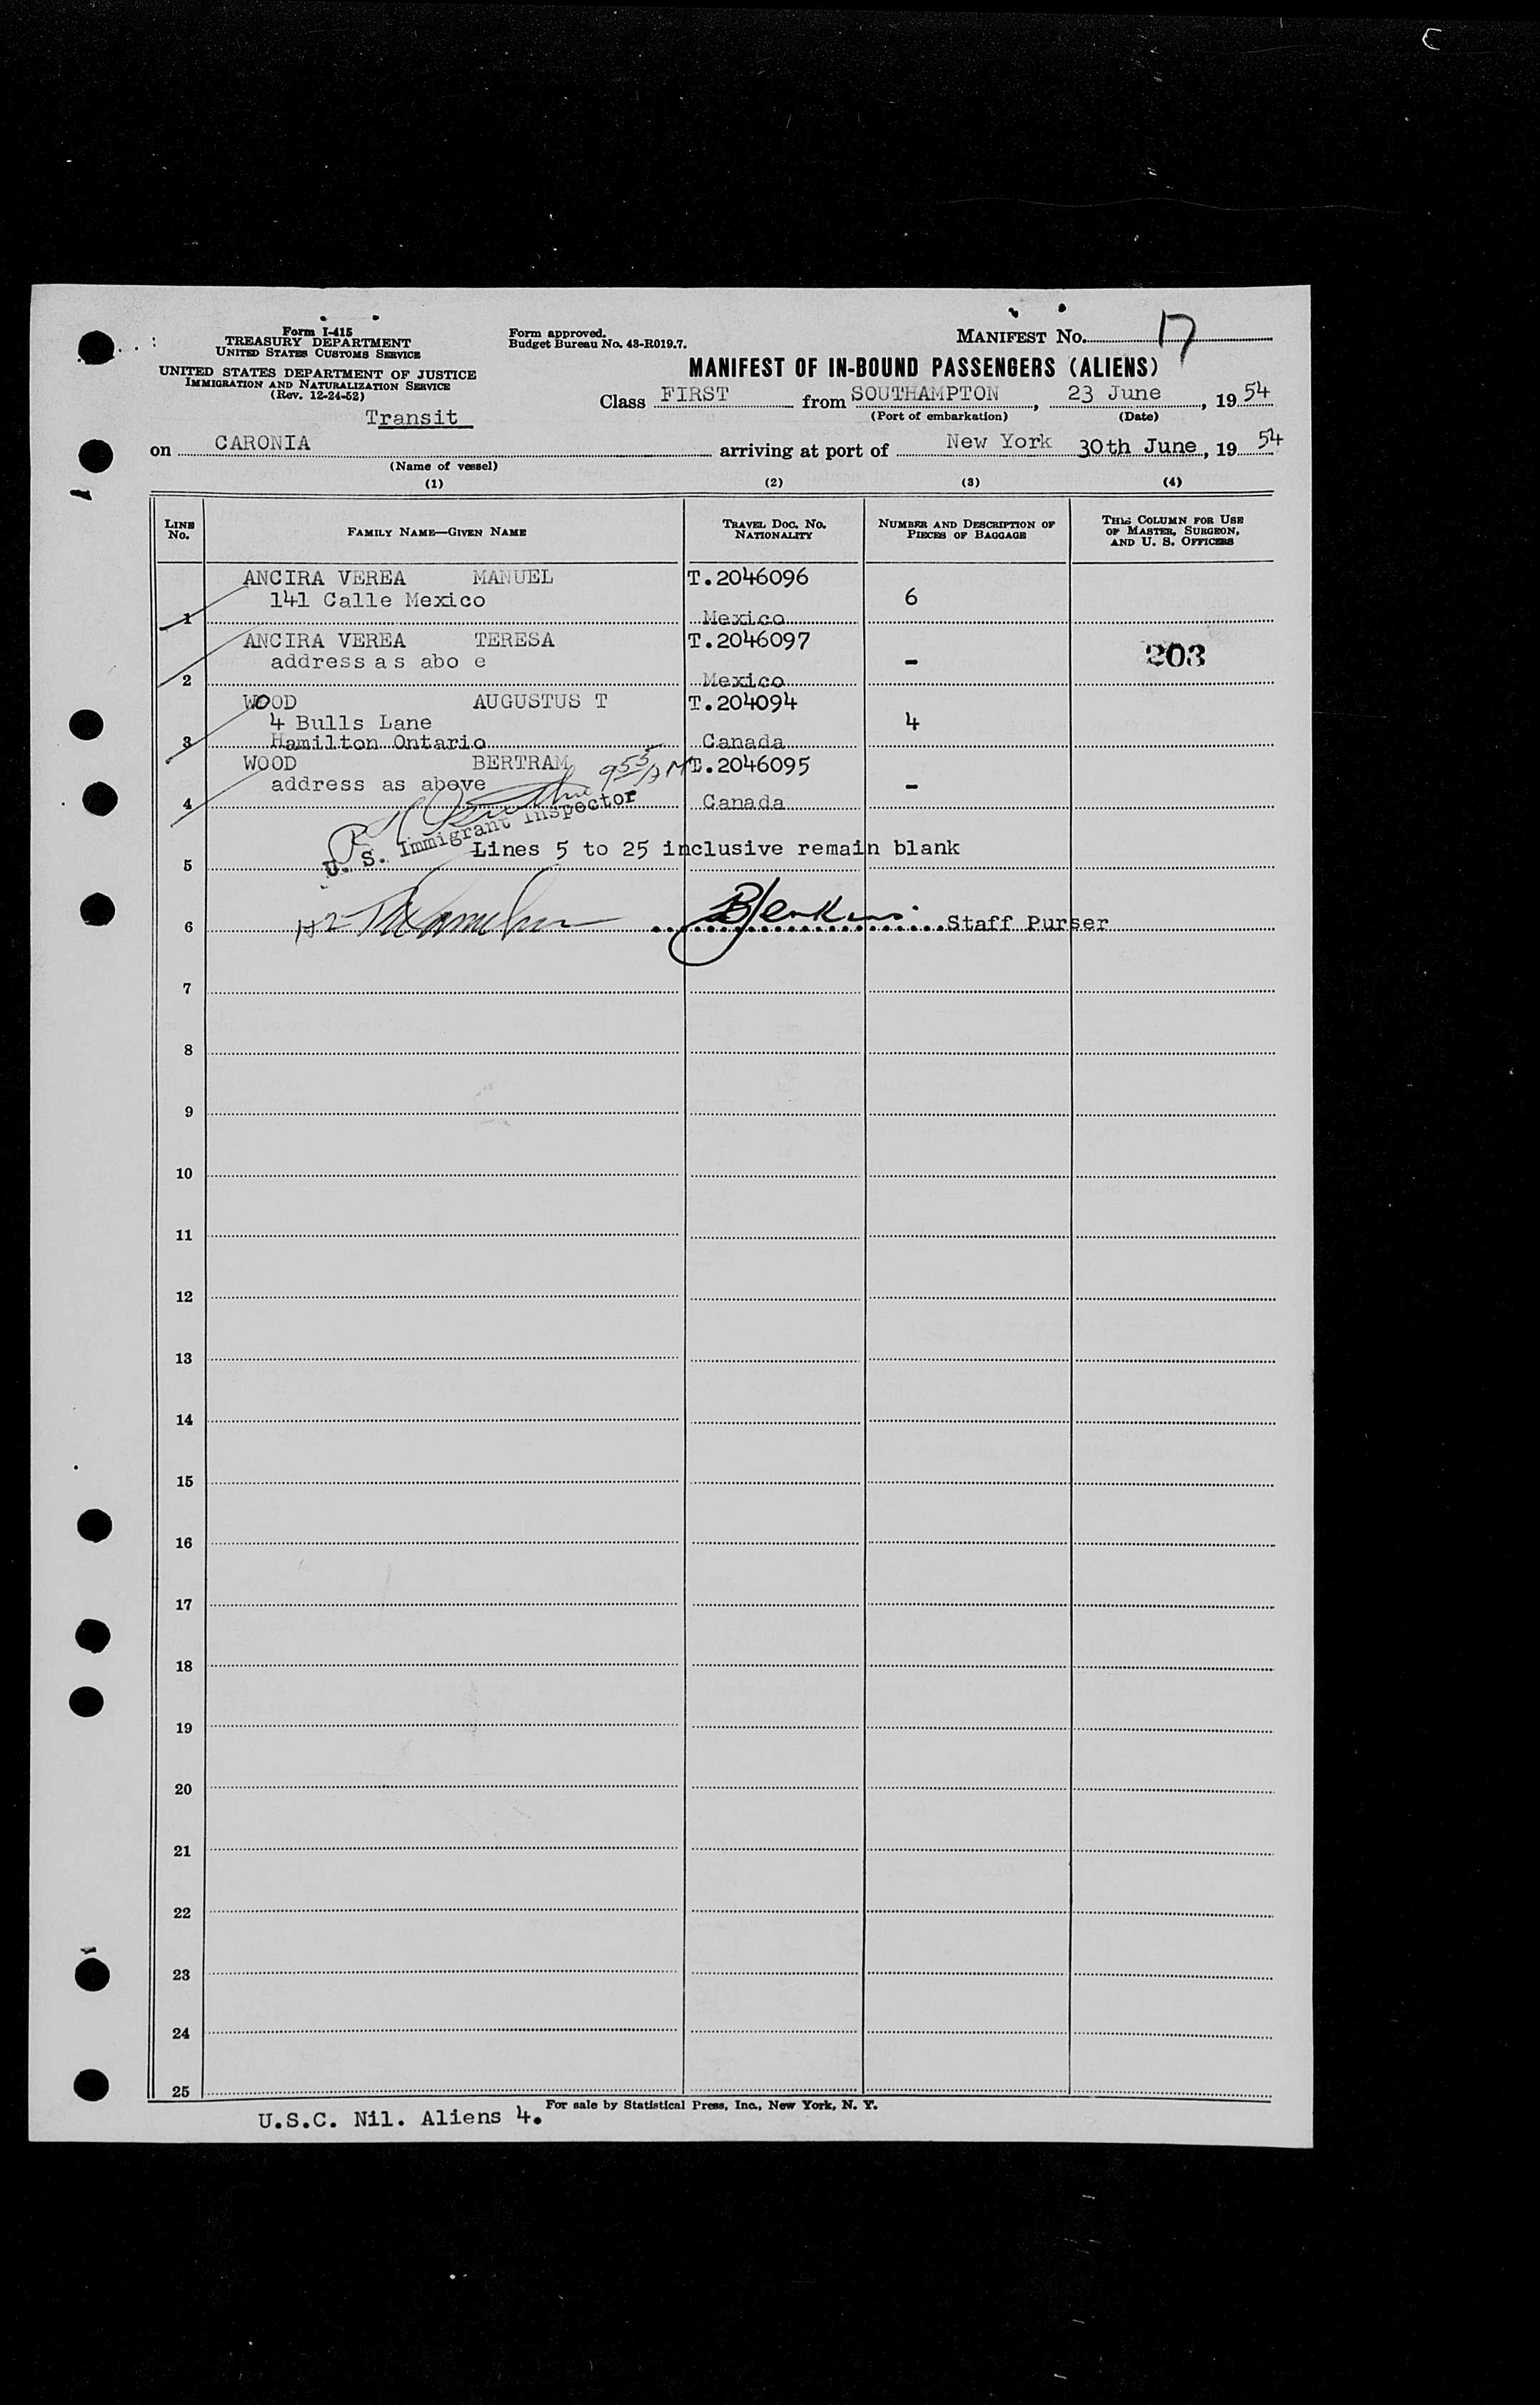 Form I-415
TREASURY DEPARTMENT
UNITED STATES CUSTOMS SERVICE
UNITED STATES DEPARTMENT OF JUSTICE
IMMIGRATION AND NATURALIZATION SERVICE
(Rev. 12-24-52)
Form approved.
Budget Bureau No. 43-R019.7.
MANIFEST No. 17
MANIFEST OF IN-BOUND PASSENGERS (ALIENS)
Class FIRST from SOUTHAMPTON, 23 June, 1954
(Port of embarkation) (Date)
Transit
on CARONIA arriving at port of New York 30th June, 1954
(Name of vessel)
(1) (2) (3) (4)
LINE No. FAMILY NAME—GIVEN NAME TRAVEL DOC. No. NATIONALITY NUMBER AND DESCRIPTION OF PIECES OF BAGGAGE THIS COLUMN FOR USE OF MASTER, SURGEON, AND U. S. OFFICERS
ANCIRA VEREA MANUEL T.2046096
141 Calle Mexico 6
1 Mexico
ANCIRA VEREA TERESA T.2046097
address as abo e - 203
2 Mexico
WOOD AUGUSTUS T T.204094
4 Bulls Lane 4
3 Hamilton Ontario Canada
WOOD BERTRAM 955 AM T.2046095
address as above -
4 Canada
U. S. Immigrant Inspector
Lines 5 to 25 inclusive remain blank
5
6 BJenkins Staff Purser
7
8
9
10
11
12
13
14
15
16
17
18
19
20
21
22
23
24
25
For sale by Statistical Press, Inc., New York, N. Y.
U.S.C. Nil. Aliens 4.